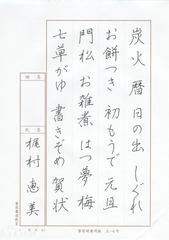 炭火 暦 日の出 しぐれ
お餅つき 初もうで 元旦
門松 お雑煮 はつ夢 梅
七草がゆ 書きぞめ 賀状
梶村 恵美
氏名